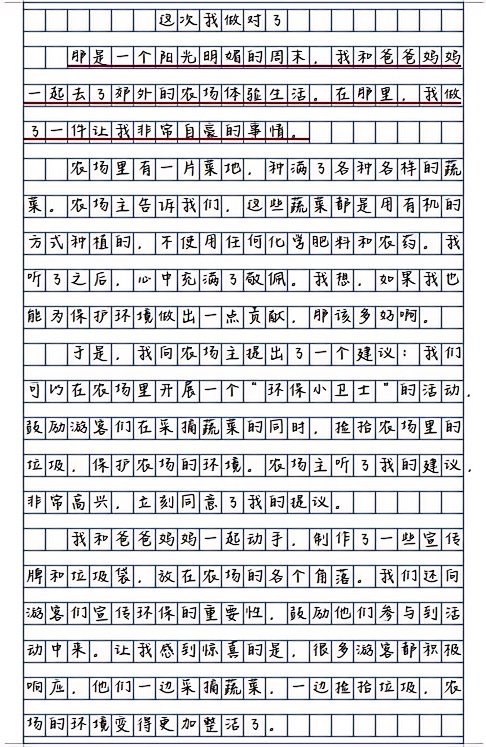 这次我做对了
那是一个阳光明媚的周末，我和爸爸妈妈
一起去了郊外的农场体验生活。在那里，我做
了一件让我非常自豪的事情。
农场里有一片菜地，种满了各种各样的蔬
菜。农场主告诉我们，这些蔬菜都是用有机的
方式种植的，不使用任何化学肥料和农药。我
听了之后，心中充满了敬佩。我想，如果我也
能为保护环境做出一点贡献，那该多好啊。
于是，我向农场主提出了一个建议：我们
可以在农场里开展一个“环保小卫士”的活动，
鼓励游客们在采摘蔬菜的同时，捡拾农场里的
垃圾，保护农场的环境。农场主听了我的建议，
非常高兴，立刻同意了我的提议。
我和爸爸妈妈一起动手，制作了一些宣传
牌和垃圾袋，放在农场的各个角落。我们还向
游客们宣传环保的重要性，鼓励他们参与到活
动中来。让我感到惊喜的是，很多游客都积极
响应，他们一边采摘蔬菜，一边捡拾垃圾，农
场的环境变得更加整洁了。